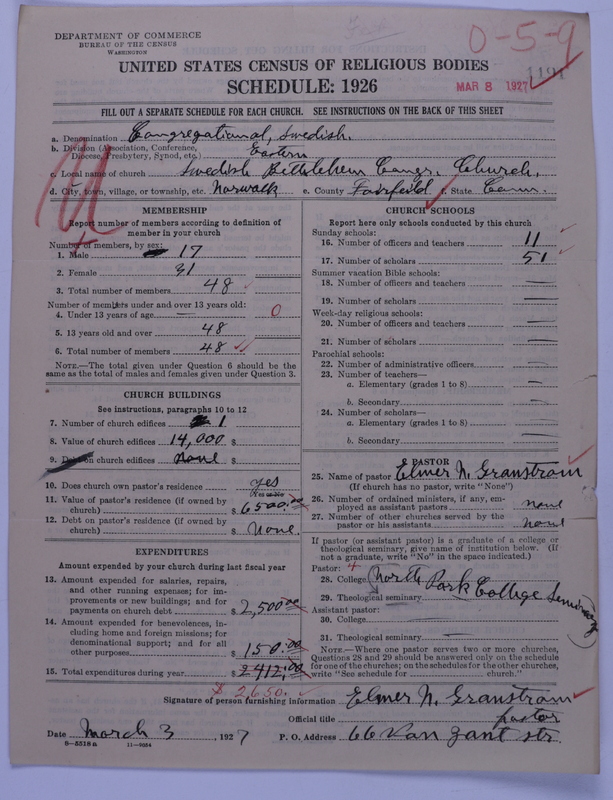 DEPARTMENT OF COMMERCE
BUREAU OF THE CENSUS
WASHINGTON
0-5-9
1191
MAR 8 1927
UNITED STATES CENSUS OF RELIGIOUS BODIES
SCHEDULE: 1926
FILL OUT A SEPARATE SCHEDULE FOR EACH CHURCH. SEE INSTRUCTIONS ON THE BACK OF THIS SHEET
a. Denomination Congregational, Swedish.
b. Division (Association, Conference, Diocese, Presbytery, Synod, etc.) Eastern
c. Local name of church Swedish Bethlehem Congr. Church,
d. City, town, village, or township, etc. Norwalk e. County Fairfield f. State Conn.
MEMBERSHIP
Report number of members according to definition of
member in your church
Number of members, by sex:
1. Male 17
2. Female 31
3. Total number of members 48
Number of members under and over 13 years old:
4. Under 13 years of age — 0
5. 13 years old and over 48
6. Total number of members 48
NOTE.—The total given under Question 6 should be the
same as the total of males and females given under Question 3.
CHURCH BUILDINGS
See instructions, paragraphs 10 to 12
7. Number of church edifices 1
8. Value of church edifices 14,000 $
9. Debt on church edifices none $
10. Does church own pastor's residence yes
Yes or No
11. Value of pastor's residence (if owned by
church) $ 6500.00
12. Debt on pastor's residence (if owned by
church) $ None.
EXPENDITURES
Amount expended by your church during last fiscal year
13. Amount expended for salaries, repairs,
and other running expenses; for im-
provements or new buildings; and for
payments on church debt $ 2,500.00
14. Amount expended for benevolences, in-
cluding home and foreign missions; for
denominational support; and for all
other purposes $ 150.00
15. Total expenditures during year $ 2412.00
$ 2650.
CHURCH SCHOOLS
Report here only schools conducted by this church
Sunday schools:
16. Number of officers and teachers 11
17. Number of scholars 51
Summer vacation Bible schools:
18. Number of officers and teachers —
19. Number of scholars —
Week-day religious schools:
20. Number of officers and teachers —
21. Number of scholars —
Parochial schools:
22. Number of administrative officers —
23. Number of teachers—
a. Elementary (grades 1 to 8) —
b. Secondary —
24. Number of scholars—
a. Elementary (grades 1 to 8) —
b. Secondary —
PASTOR
25. Name of pastor Elmer N. Granstrom
(If church has no pastor, write "None")
26. Number of ordained ministers, if any, em-
ployed as assistant pastors none
27. Number of other churches served by the
pastor or his assistants none
If pastor (or assistant pastor) is a graduate of a college or
theological seminary, give name of institution below. (If
not a graduate, write "No" in the space indicated.)
Pastor:
28. College North Park College Seminary
29. Theological seminary
Assistant pastor:
30. College —
31. Theological seminary —
NOTE.—Where one pastor serves two or more churches,
Questions 28 and 29 should be answered only on the schedule
for one of the churches; on the schedules for the other churches,
write "See schedule for church."
Signature of person furnishing information Elmer N. Granstrom
Official title pastor
Date March 3, 1927 P. O. Address 66 Van Zant str.
8-5518 a 11-9034